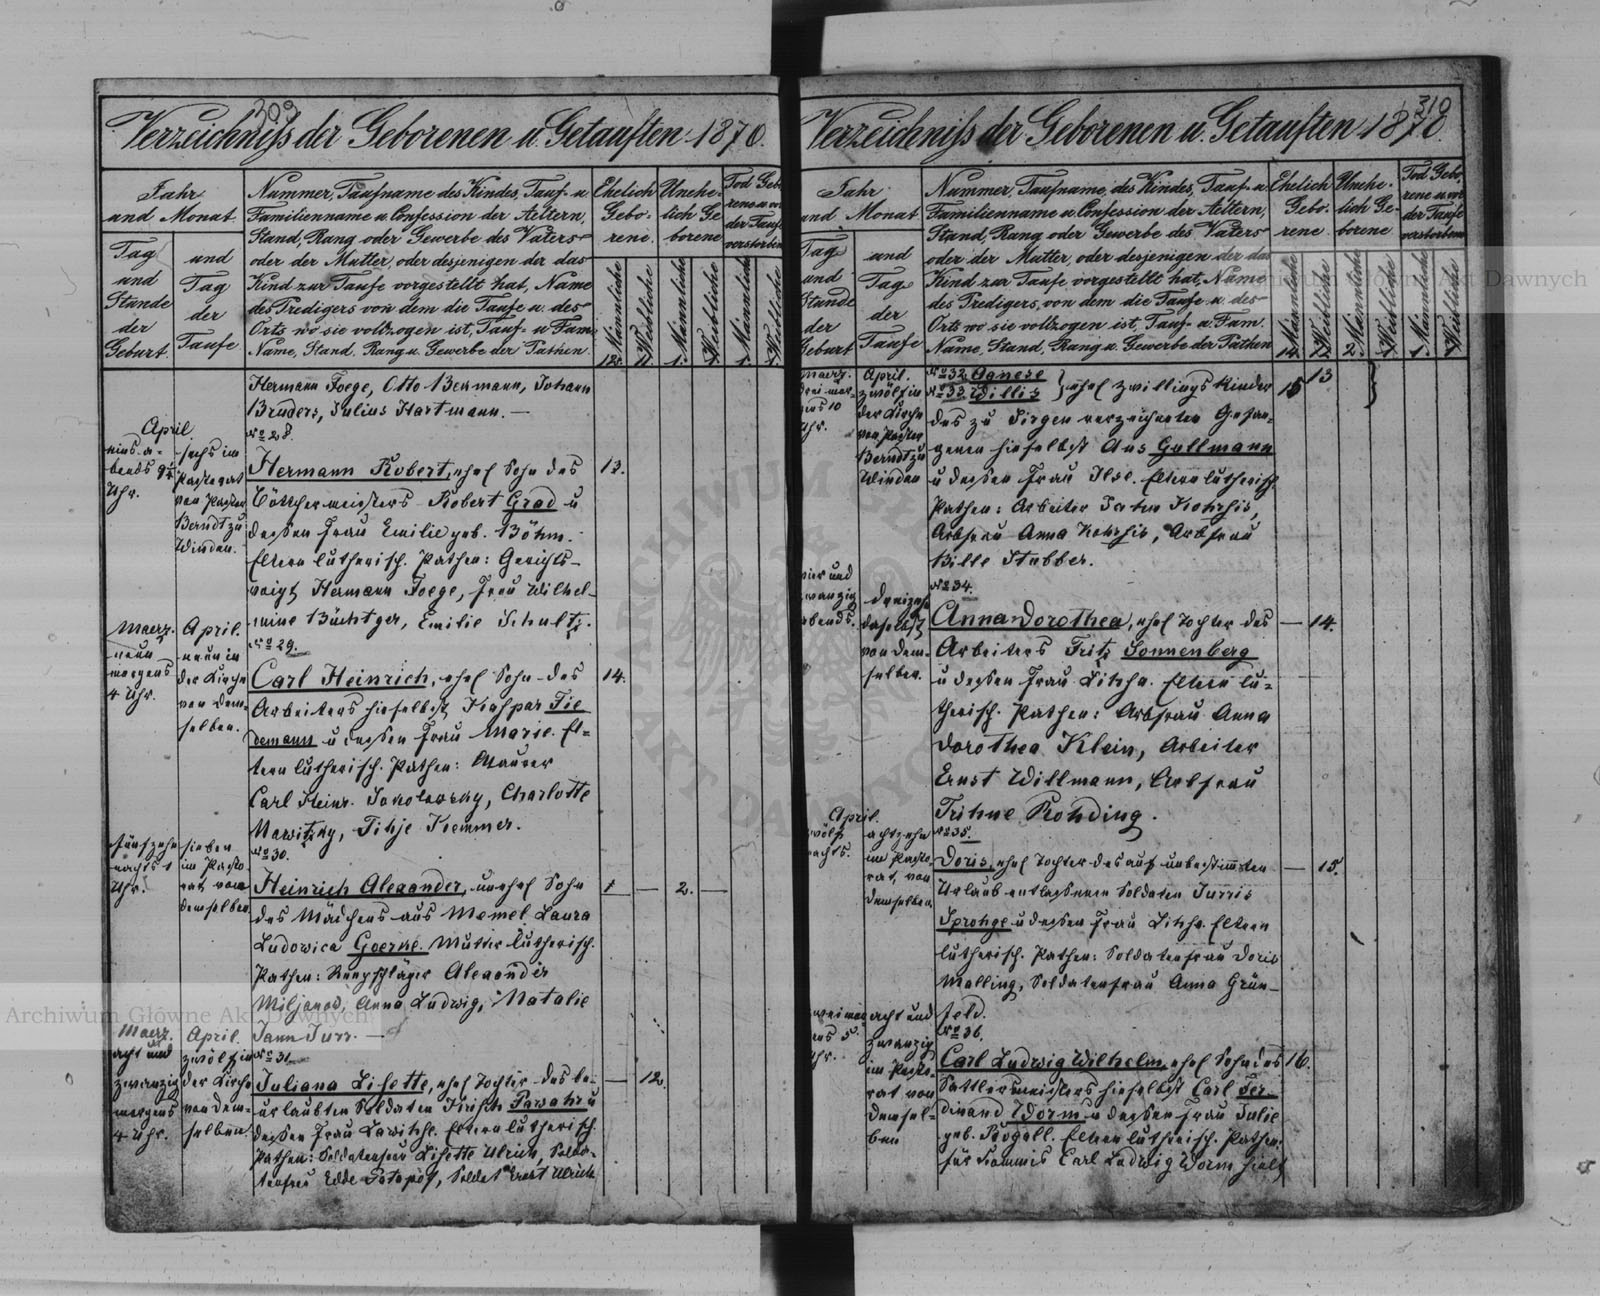 309
Verzeichniss der Geborenen u. Getauften 1870.
Jahr
und Monat
Tag
und
Stunde
der
Geburt.
und
Tag
der
Taufe
Nummer, Taufname des Kindes, Tauf- u.
Familienname u. Confession der Aeltern,
Stand, Rang oder Gewerbe des Vaters
oder der Mutter, oder desjenigen der das
Kind zur Taufe vorgestellt hat, Name
des Predigers von dem die Taufe u. des
Orts wo sie vollzogen ist, Tauf- u. Fam.
Name, Stand, Rang u. Gewerbe der Pathen.
Ehelich
Gebo-
rene.
Unehe-
lich Ge-
borene
Tod Gebo
rene u. vor
der Taufe
verstorbene
Männliche
Weibliche
Männliche
Weibliche
Männliche
Weibliche
12. 11. 1. 1.
Hermann Foege, Otto Bermann, Johann
Bruders, Julius Hartmann. —
No 28.
April
eins a-
bends 9½
Uhr.
sechs im
Pastorat
von Pastor
Berndt zu
Windau.
Hermann Robert, ehel Sohn des 13.
Böttchermeisters Robert Grad u
dessen Frau Emilie geb. Böhm.
Eltern lutherisch. Pathen: Gerichts-
voigt Hermann Foege, Frau Wilhel-
mine Büchtger, Emilie Schultz.
No 29.
Maerz.
neun
morgens
4 Uhr.
April.
neun in
der Kirche
von dem-
selben.
Carl Heinrich, ehel Sohn des 14.
Arbeiters hieselbst Kaspar Tie
demann u dessen Frau Marie. El-
tern lutherisch. Pathen: Maurer
Carl Heinr. Sokolowsky, Charlotte
Marwitzky, Tihje Kremmer.
No 30.
fünfzehn
nachts 1
Uhr.
sieben
im Pasto-
rat, von
demselben
Heinrich Alexander, unehel Sohn — 2. —
des Mädchens aus Memel Laura
Ludowica Goerke. Mutter lutherisch.
Pathen: Reepschläger Alexander
Miljanow, Anna Ludwig, Natalie
Jann Jurr. —
No 31.
Maerz.
acht und
zwanzig
morgens
4 Uhr.
April.
zwölf in
der Kirche
von dem-
selben.
Juliana Lisette, ehel Tochter des be- — 12.
urlaubten Soldaten Krisch Parwahr u
dessen Frau Lawihse. Eltern lutherisch.
Pathen: Soldatenfrau Lisette Ulrich, Solda-
tenfrau Edde Potapof, Soldat Ernst Ulrich.
310
Verzeichniss der Geborenen u. Getauften 1870.
Jahr
und Monat
Tag
und
Stunde
der
Geburt
und
Tag
der
Taufe
Nummer, Taufname, des Kindes, Tauf- u.
Familienname u. Confession der Aeltern,
Stand, Rang oder Gewerbe des Vaters
oder der Mutter, oder desjenigen der das
Kind zur Taufe vorgestellt hat, Name
des Predigers, von dem die Taufe u. des
Orts wo sie vollzogen ist, Tauf- u. Fam.
Name, Stand, Rang u. Gewerbe der Pathen
Ehelich
Gebo-
rene
Unehe-
lich Ge-
borene
Tod Gebo
rene u. vor
der Taufe
verstorbene
Männliche
Weibliche
Männliche
Weibliche
Männliche
Weibliche
14. 12 2. 1.
Maerz.
drei mor-
gens 10
Uhr.
April.
zwölf in
der Kirche
von Pastor
Berndt zu
Windau
No 32. Agnese
No 33. Willis } ehel Zwillings Kinder 15 13
des zu Sirgen verzeichneten Gefan-
genen hieselbst Ans Gullmann
u dessen Frau Ilse. Eltern lutherisch.
Pathen: Arbeiter Jahn Kohrsis,
Arbfrau Anna Kohrsis, Arbfrau
Bille Stubber.
No 34.
vier und
zwanzig
abends.
dreizehn
daselbst
von dem-
selben.
Anna Dorothea, ehel Tochter des — 14.
Arbeiters Fritz Sonnenberg
u dessen Frau Lihse. Eltern lu-
therisch. Pathen: Arbfrau Anna
Dorothea Klein, Arbeiter
Ernst Willmann, Arbfrau
Trihne Rohding.
No 35.
April.
zwölf
nachts.
achtzehn
im Pasto-
rat, von
demselben
Doris, ehel Tochter des auf unbestimmten — 15.
Urlaub entlassenen Soldaten Jurris
Sprohge u dessen Frau Lihse. Eltern
lutherisch. Pathen: Soldatenfrau Doris
Malling, Soldatenfrau Anna Grün-
feld.
No 36.
acht und
zwanzig
im Pasto-
rat von
demsel-
ben
Carl Ludwig Wilhelm, ehel Sohn des 16.
Sattlermeisters hieselbst Carl Fer-
dinand Worm u dessen Frau Julie
geb. Rogall. Eltern lutherisch. Pathen:
für Commis Carl Ludwig Worm hielt
Archiwum Główne Akt Dawnych
Archiwum Główne Akt Dawnych